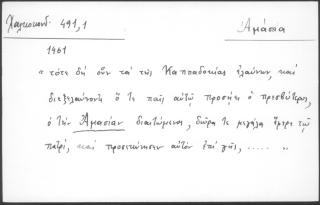 Χαλκοκονδ. 491,1
Ἀμάσεια
1461
« τότε δὴ οὖν τὰ τῆς Καππαδοκίας ἐλαύνων, καὶ
διεξελαύνοντι ὅ τε παῖς αὐτῷ προσῄει ὁ πρεσβύτερος,
ὁ τὴν Ἀμασίαν διαιτώμενος, δῶρά τε μεγάλα ἔφερε τῷ
πατρί, καὶ προσεκύνησεν αὐτὸν ἐπὶ γῆς, ..... »